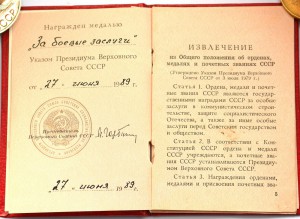 Награжден медалью
„За боевые заслуги"
Указом Президиума Верховного
Совета СССР
от „27" июня 1989 г.
Председатель
„27" июня 1989 г.
ИЗВЛЕЧЕНИЕ
из Общего положения об орденах,
медалях и почетных званиях СССР
(Утверждено Указом Президиума Верховного
Совета СССР от 3 июля 1979 г.)
Статья 1. Ордена, медали и почетные
звания СССР являются
государственными наградами СССР за особые
заслуги в коммунистическом
строительстве, защите социалистического
Отечества, а также за иные особые
заслуги перед Советским государством
и обществом.
Статья 2. В соответствии с
Конституцией СССР ордена и медали
СССР учреждаются, а почетные звания
СССР устанавливаются Президиумом
Верховного Совета СССР.
Статья 3. Награждение орденами,
медалями и присвоение почетных